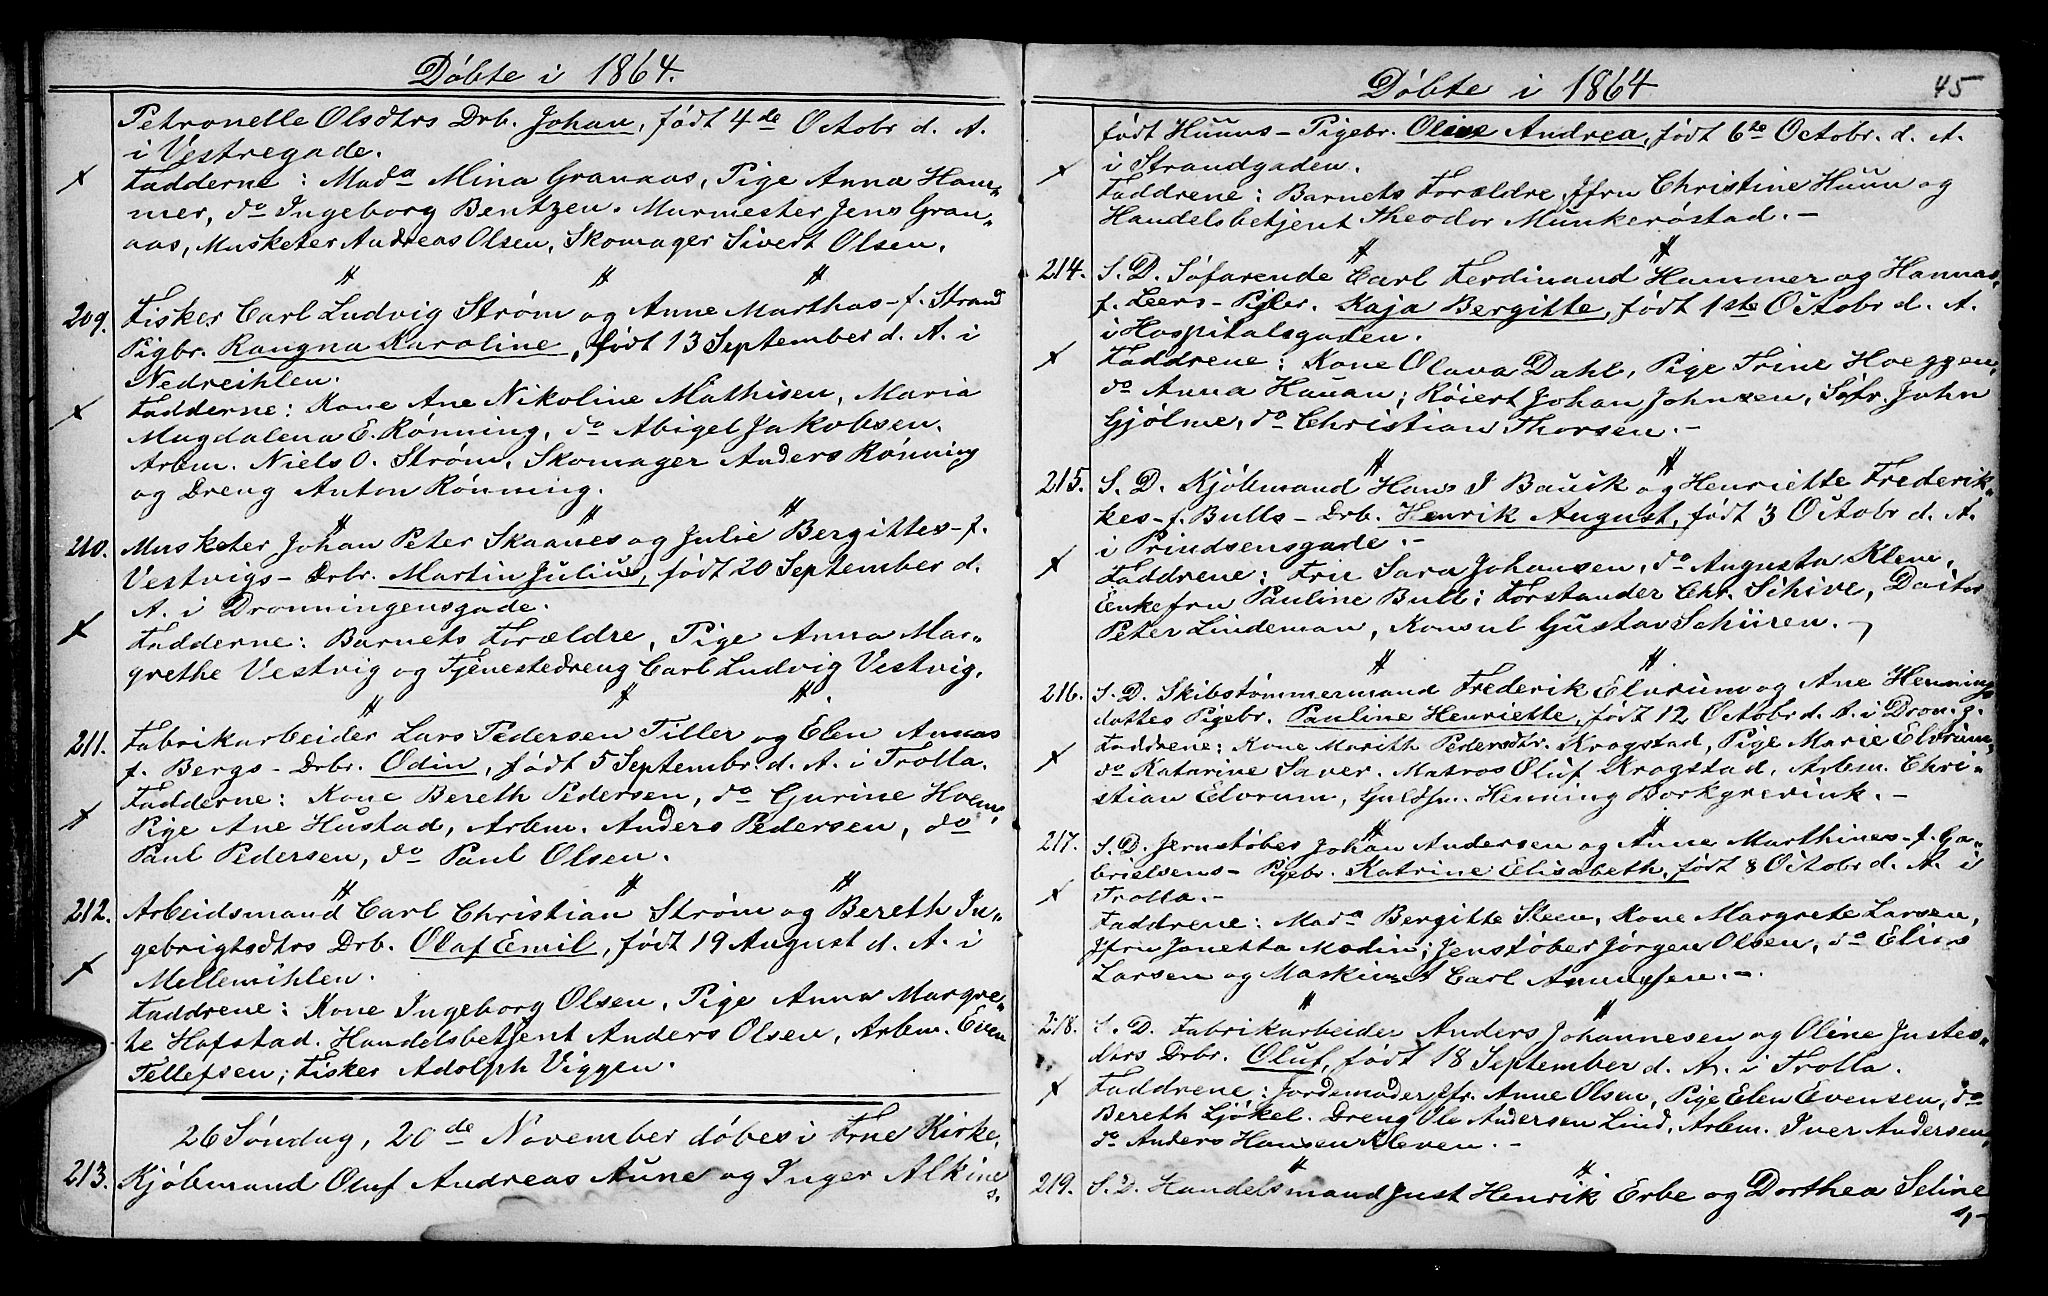 Döbte i 1864.
Petronelle Olsdtrs Drb. Johan, født 4de Octobr d. A.
i Vestregade.
x Fadderne: Mada Mina Granaas, Pige Anna Ham-
mer, do Ingeborg Bentzen. Murmester Jens Gran-
aas, Musketer Andreas Olsen, Skomager Sivert Olsen.
209. Fisker Carl Ludvig Strøm og Anne Marthas f. Strand
Pigbr. Rangna Karoline, født 13 September d. A. i
Nedreihlen.
x Fadderne: Kone Ane Nikoline Mathisen, Maria
Magdalena E. Rønning, do Abigel Jakobsen.
Arbm. Niels O. Strøm, Skomager Anders Rønning
og Dreng Anton Rønning.
210. Musketer Johan Peter Skaanes og Julie Bergittes f.
Vestvigs Drbr. Martin Julius, født 20 September d.
A. i Dronningensgade.
x Fadderne: Barnets Forældre, Pige Anna Mar-
grethe Vestvig og Tjenestedreng Carl Ludvig Vestvig.
211. Fabrikarbeider Lars Pedersen Tiller og Elen Annas
f. Bergs Drbr. Odin, født 5 Septembr. d. A. i Trolla.
x Fadderne: Kone Bereth Pedersen, do Gurine Holm,
Pige Ane Hustad, Arbm. Anders Pedersen, do
Paul Pedersen, do Paul Olsen.
212. Arbeidsmand Carl Christian Strøm og Bereth In-
gebrigtsdtrs Drb. Olaf Emil, født 19 August d. A. i
x Mellemihlen.
Faddrene: Kone Ingeborg Olsen, Pige Anna Margre-
te Hofstad. Handelsbetjent Anders Olsen, Arbm. Even
Tellefsen; Fisker Adolph Viggen.
26 Søndag, 20de November døbes i Frue Kirke.
213. Kjöbmand Oluf Andreas Aune og Inger Alkine
s.
Döbte i 1864
45
født Huuns Pigebr. Olive Andrea, født 6te Octobr. d. A.
x i Strandgaden.
Faddrene: Barnets Forældre, Jfru Christine Huun og
Handelsbetjent Theodor Munkerøstad.
214. S. D. Søfarende Carl Ferdinand Hammer og Hannas
f. Leers Pigbr. Kaja Bergitte, født 1ste Octobr d. A.
i Hospitalsgaden.
x Faddrene: Kone Olava Dahl, Pige Trine Hoeggen,
do Anna Hauan; Røiert Johan Johnsen, Søfr. John
Gjølme, do Christian Thorsen.
215. S. D. Kjöbmand Hans J Bauck og Henriette Frederik-
kes f. Bulls Drb. Henrik August, født 3 Octobr d. A.
i Prindsensgade.
x Faddrene: Fru Sara Johansen, do Augusta Klem,
Enkefru Pauline Bull; Forstander Chr. Schive, Doctor
Peter Lindeman, Konsul Gustav Schüren.
216. S. D. Skibstømmermand Frederik Elvrum og Ane Hennings
dottes Pigebr. Pauline Henriette, født 12 Octobr d. A. i Dron.g.
x Faddrene: Kone Marith Pedersdtr. Krogstad, Pige Marie Elvrum,
do Katarine Saver. Matros Oluf Krogstad, Arbm. Chri-
stian Elvrum, Guldsm. Henning Borkgrevink.
217. S. D. Jernstøber Johan Andersen og Anne Marthines f. Ga-
brielsens Pigebr. Katrine Elisabeth, født 8 Octobr d. A. i
x Trolla.
Faddrene: Mada Bergitte Steen, Kone Margrete Larsen,
Jfru Janetta Modin; Jenstøber Jørgen Olsen, do Elias
Larsen og Maskinist Carl Amundsen.
218. S. D. Fabrikarbeider Anders Johannesen og Oline Justes-
dtrs Drbr. Oluf, født 18 September d. A. i Trolla.
x Faddrene: Jordemoder Jfr. Anne Olsen, Pige Elen Evensen, do
Bereth Ljøkel. Dreng Ole Andersen Lind, Arbm. Iver Andersen,
do Anders Hansen Kleven.
219. S. D. Handelsmand Just Henrik Erbe og Dorthea Seline
s,